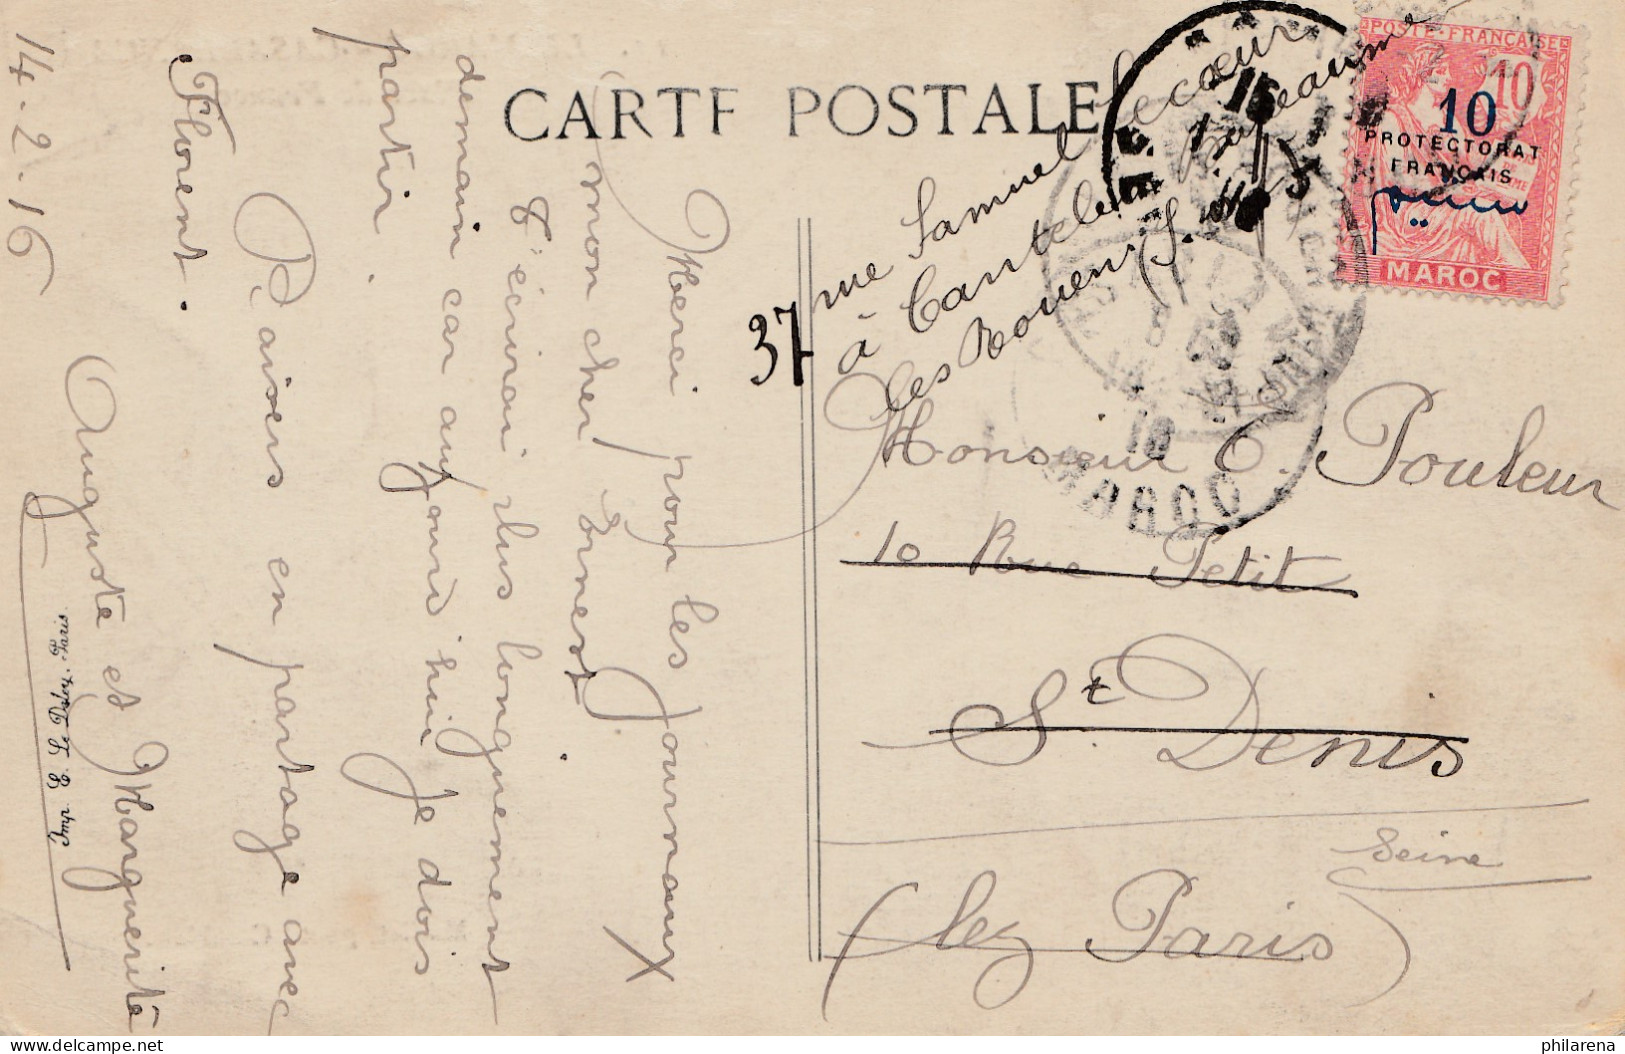 CARTE POSTALE
Merci pour les Journaux
mon cher Ernest.
T'écrirai plus longuement
demain car aujourd'hui Je dois
partir.
Baisers en partage avec
Florent.
Auguste et Marguerite
14-2-16
Imp. E. Le Deley, Paris
37 rue Samuel Lecœur
à Canteleu
les Rouen
Monsieur E. Pouleur
10 Rue Petit
St. Denis
Seine
(lez Paris)
POSTE FRANÇAISE
10
10
PROTECTORAT
FRANÇAIS
MAROC
MAROC
philarena
Delcampe.net